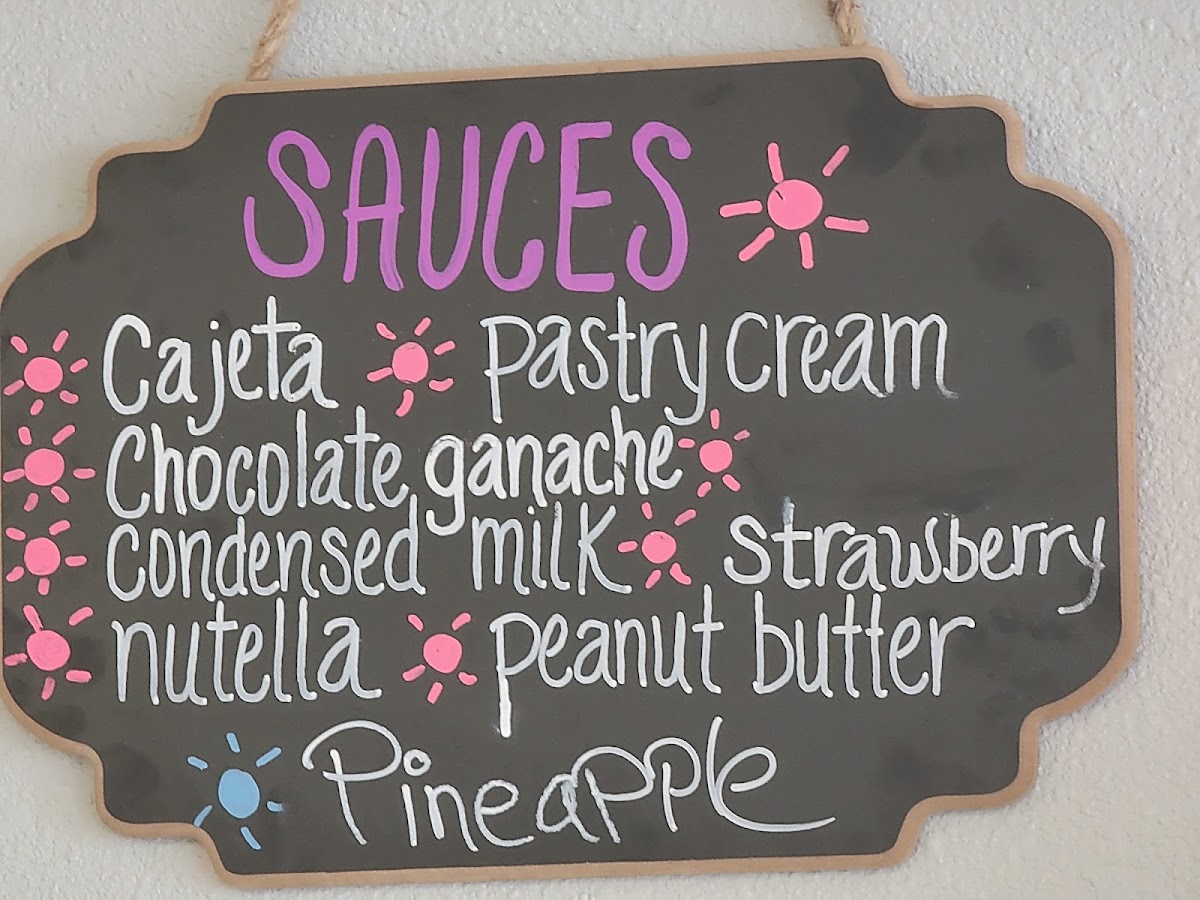 SAUCES
Cajeta pastry cream
Chocolate ganache
condensed milk strawberry
nutella peanut butter
Pineapple